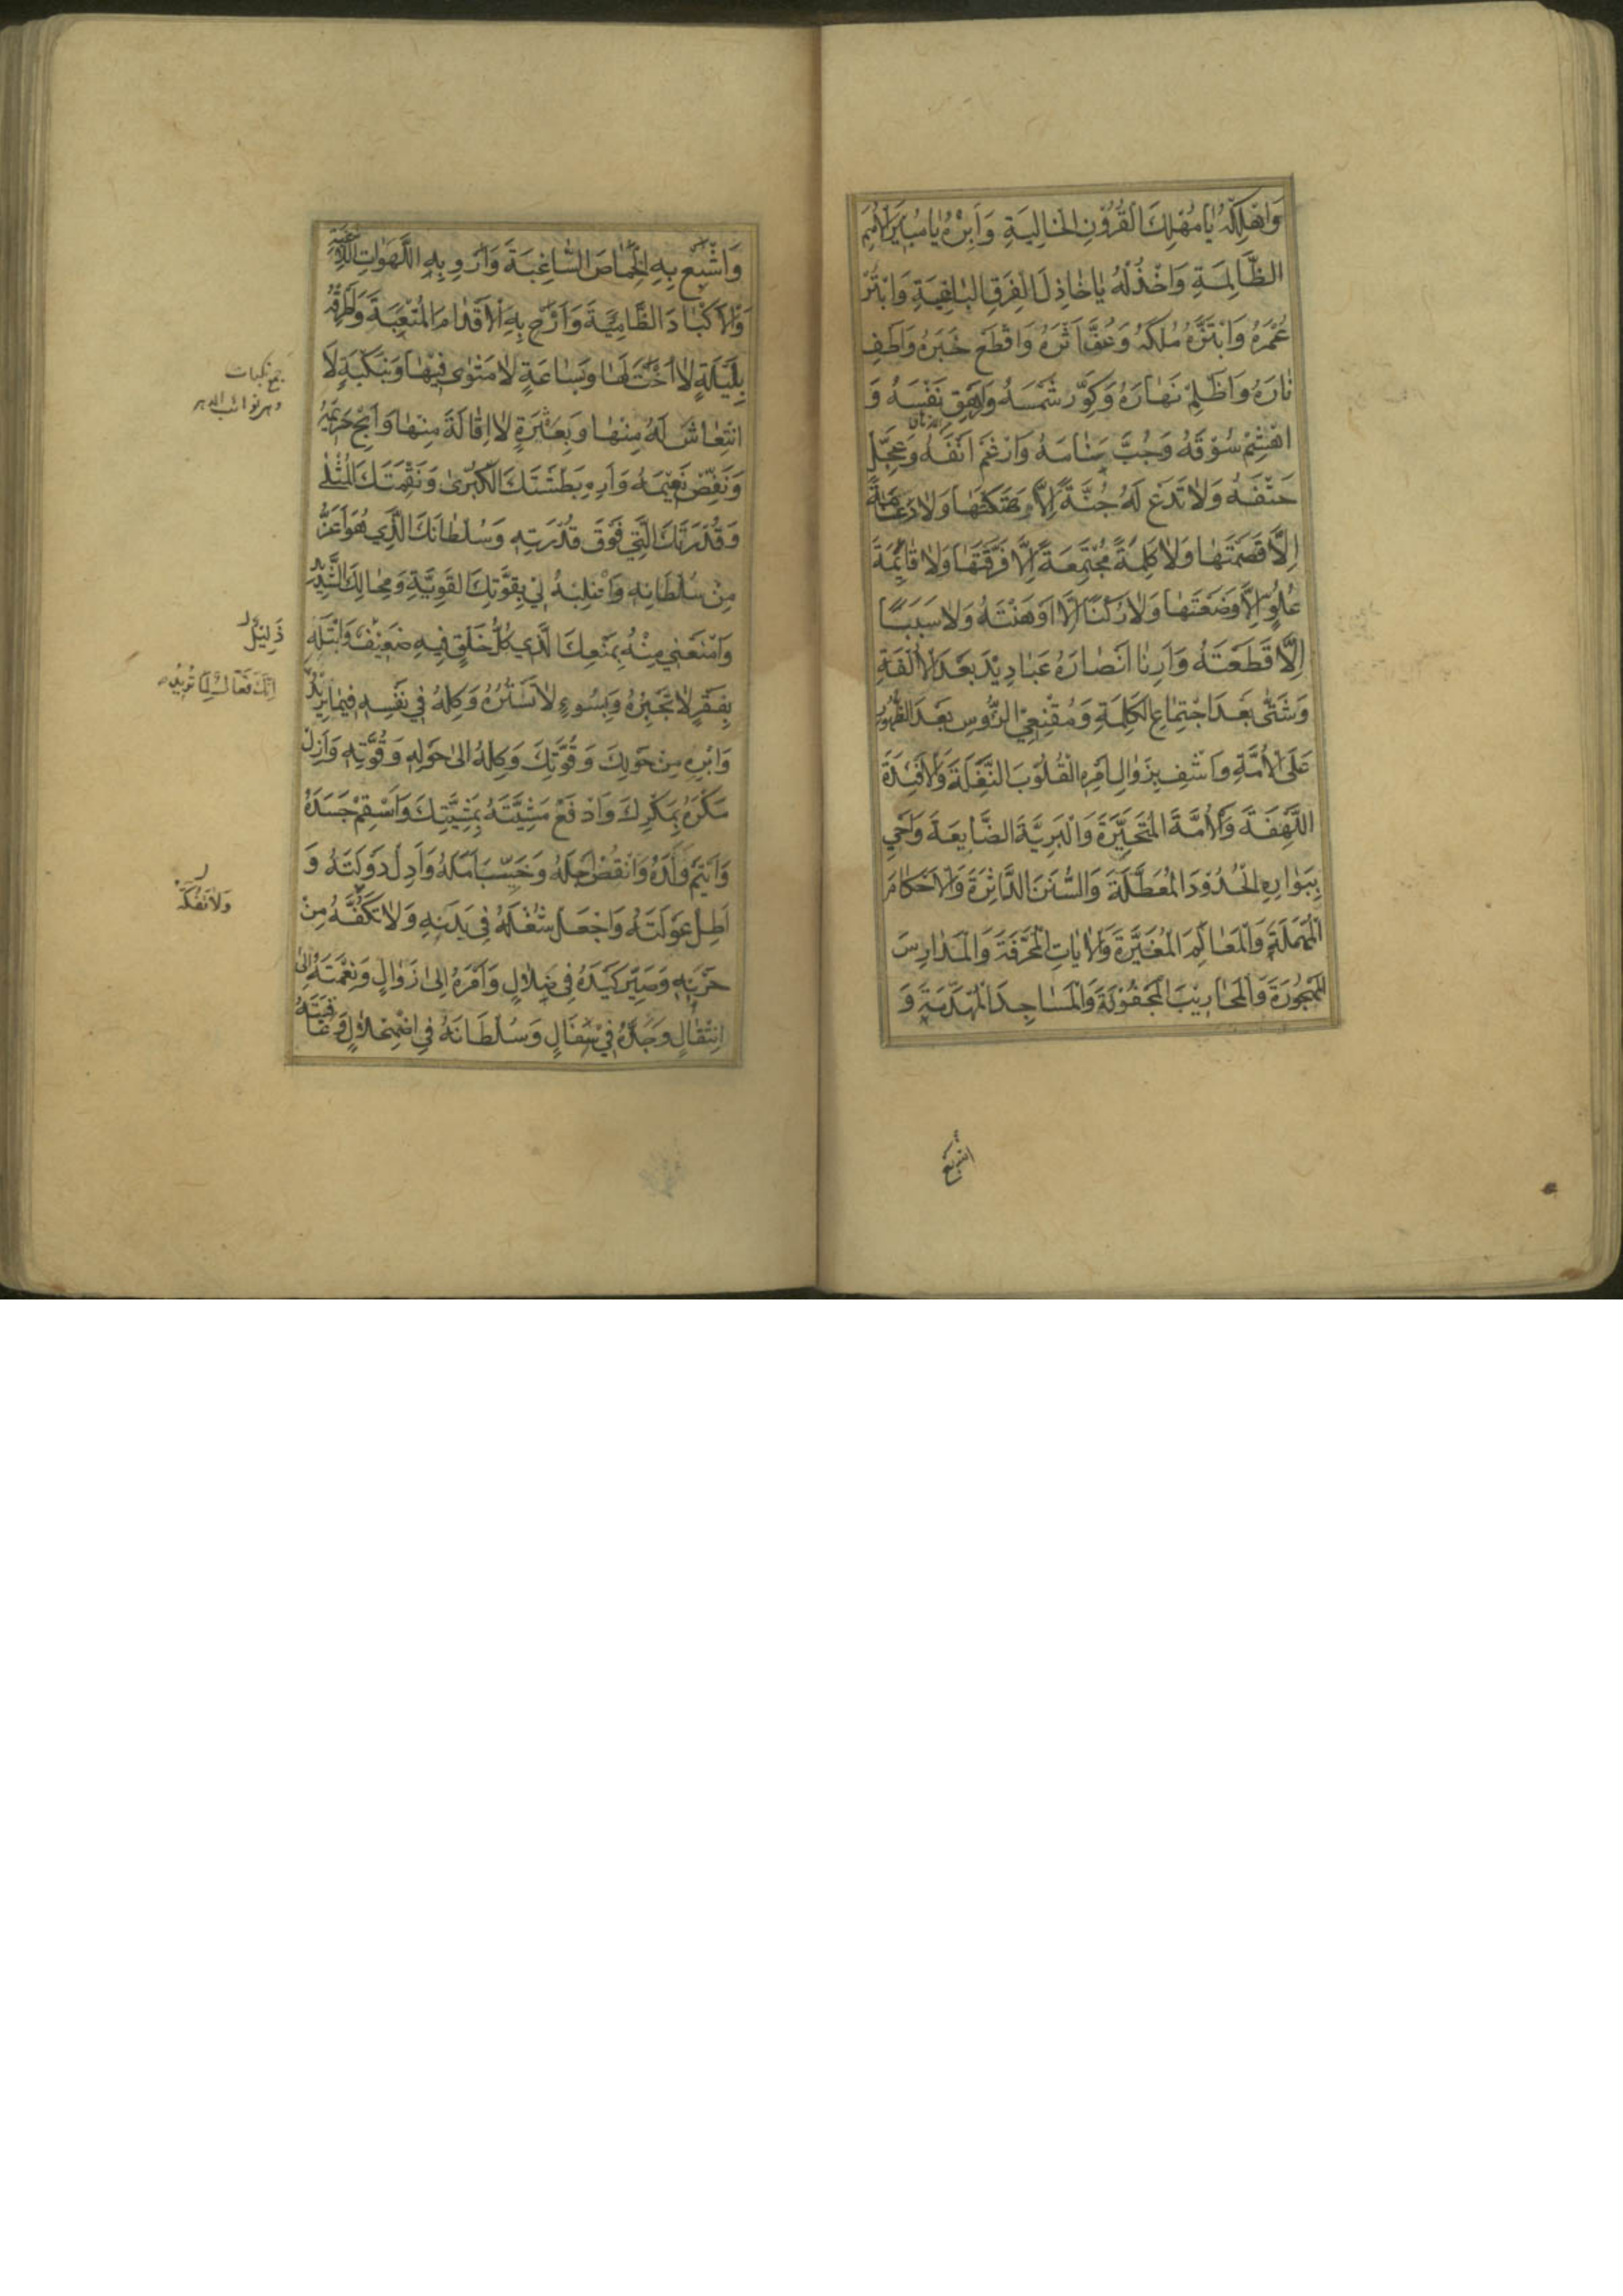 وَاَهْلِكْهُ يٰا مُهْلِكَ الْقُرُوْنِ الْخٰالِيَةِ وَاَبِرْهُ يٰا مُبِيْرَ الْاُمَمِ
الظّٰالِمَةِ وَاخْذُلْهُ يٰا خٰاذِلَ الْفِرَقِ الْبٰاغِيَةِ وَابْتُرْ
عُمْرَهُ وَابْتَزَّهُ مُلْكَهُ وَعَفِّ اَثَرَهُ وَاقْطَعْ خَبَرَهُ وَاَطْفِ
نٰارَهُ وَاَظْلِمْ نَهٰارَهُ وَكَوِّرْ شَمْسَهُ وَاَزْهِقْ نَفْسَهُ وَ
اهْشِمْ سُوْقَهُ وَجُبَّ سَنٰامَهُ وَاَرْغِمْ اَنْفَهُ وَعَجِّلْ
حَتْفَهُ وَلٰا تَدَعْ لَهُ جُنَّةً اِلَّا هَتَكْتَهٰا وَلٰا دِعٰامَةً
اِلَّا قَصَمْتَهٰا وَلٰا كَلِمَةً مُجْتَمِعَةً اِلَّا فَرَّقْتَهٰا وَلٰا قٰائِمَةَ
عُلُوٍّ اِلَّا وَضَعْتَهٰا وَلٰا رُكْنًا اِلَّا اَوْهَنْتَهُ وَلٰا سَبَبًا
اِلَّا قَطَعْتَهُ وَاَرِنٰا اَنْصٰارَهُ عَبٰادِيْدَ بَعْدَ الْاُلْفَةِ
وَشَتّٰى بَعْدَ اجْتِمٰاعِ الْكَلِمَةِ وَمُقْنِعِي الرُّؤُسِ بَعْدَ الظُّهُوْرِ
عَلَى الْاُمَّةِ وَاشْفِ بِزَوٰالِ اَمْرِهِ الْقُلُوْبَ النَّغِلَةَ وَالْاَفْئِدَةَ
اللَّهِفَةَ وَالْاُمَّةَ الْمُتَحَيِّرَةَ وَالْبَرِيَّةَ الضّٰايِعَةَ وَاَحْيِ
بِبَوٰارِهِ الْحُدُوْدَ الْمُعَطَّلَةَ وَالسُّنَنَ الدّٰاثِرَةَ وَالْاَحْكٰامَ
الْمُهْمَلَةَ وَالْمَعٰالِمَ الْمُغَيَّرَةَ وَالْاٰيٰاتِ الْمُحَرَّفَةَ وَالْمَدٰارِسَ
الْمَهْجُوْرَةَ وَالْمَحٰارِيْبَ الْمَجْفُوَّةَ وَالْمَسٰاجِدَ الْمُهَدَّمَةَ وَ
اشبع
وَاَشْبِعْ بِهِ الْخِمٰاصَ السّٰاغِبَةَ وَاَرْوِ بِهِ اللَّهَوٰاتِ اللّٰاغِبَةَ
وَالْاَكْبٰادَ الظّٰامِيَةَ وَاَرِحْ بِهِ الْاَقْدٰامَ الْمُتْعَبَةَ وَاطْرُقْهُ
بِلَيْلَةٍ لٰا اُخْتَ لَهٰا وَبِسٰاعَةٍ لٰا مَثْوٰى فِيْهٰا وَبِنَكْبَةٍ لَا
انْتِعٰاشَ لَهُ مِنْهٰا وَبِعَثْرَةٍ لٰا اِقٰالَةَ مِنْهٰا وَاَبِحْ حَرِيْمَهُ
وَنَغِّصْ نَعِيْمَهُ وَاَرِهِ بَطْشَتَكَ الْكُبْرٰى وَنَقِمَتَكَ الْمُثْلٰى
وَقُدْرَتَكَ الَّتِي فَوْقَ قُدْرَتِهِ وَسُلْطٰانَكَ الَّذِي هُوَ اَعَزُّ
مِنْ سُلْطٰانِهِ وَاغْلِبْهُ لِيْ بِقُوَّتِكَ الْقَوِيَّةِ وَمِحٰالِكَ الشَّدِيْدِ
وَامْنَعْنِي مِنْهُ بِمَنْعِكَ الَّذِي كُلُّ خَلْقٍ فِيهِ ضَعِيْفٌ وَابْتَلِهِ
بِفَقْرٍ لٰا تَجْبُرُهُ وَبِسُوءٍ لٰا تَسْتُرُهُ وَكِلْهُ فِي نَفْسِهِ فِيْمٰا يُرِيْدُ
وَابْرِهِ مِنْ حَوْلِكَ وَقُوَّتِكَ وَكِلْهُ اِلٰى حَوْلِهِ وَقُوَّتِهِ وَاَزِلْ
مَكْرَهُ بِمَكْرِكَ وَادْفَعْ مَشِيَّتَهُ بِمَشِيَّتِكَ وَاَسْقِمْ جَسَدَهُ
وَاَيْتِمْ وَلَدَهُ وَانْقُصْ اَجَلَهُ وَخَيِّبْ اَمَلَهُ وَاَدِلْ دَوْلَتَهُ وَ
اَطِلْ عَوْلَتَهُ وَاجْعَلْ شُغْلَهُ فِي بَدَنِهِ وَلٰا تَكُفَّهُ مِنْ
حُزْنِهِ وَصَيِّرْ كَيْدَهُ فِي ضَلٰالٍ وَاَمْرَهُ اِلٰى زَوٰالٍ وَنِعْمَتَهُ اِلَى
انْتِقٰالٍ وَجَدَّهُ فِي سَفٰالٍ وَسُلْطٰانَهُ فِي اضْمِحْلٰالٍ وَعٰاقِبَتَهُ
جمع نكبات
وهي نوائب الدهر
ذَلِيْلٌ
اِنَّكَ فَعّٰالٌ لِمٰا تُرِيْدُ
وَلٰا تَفُكَّهُ